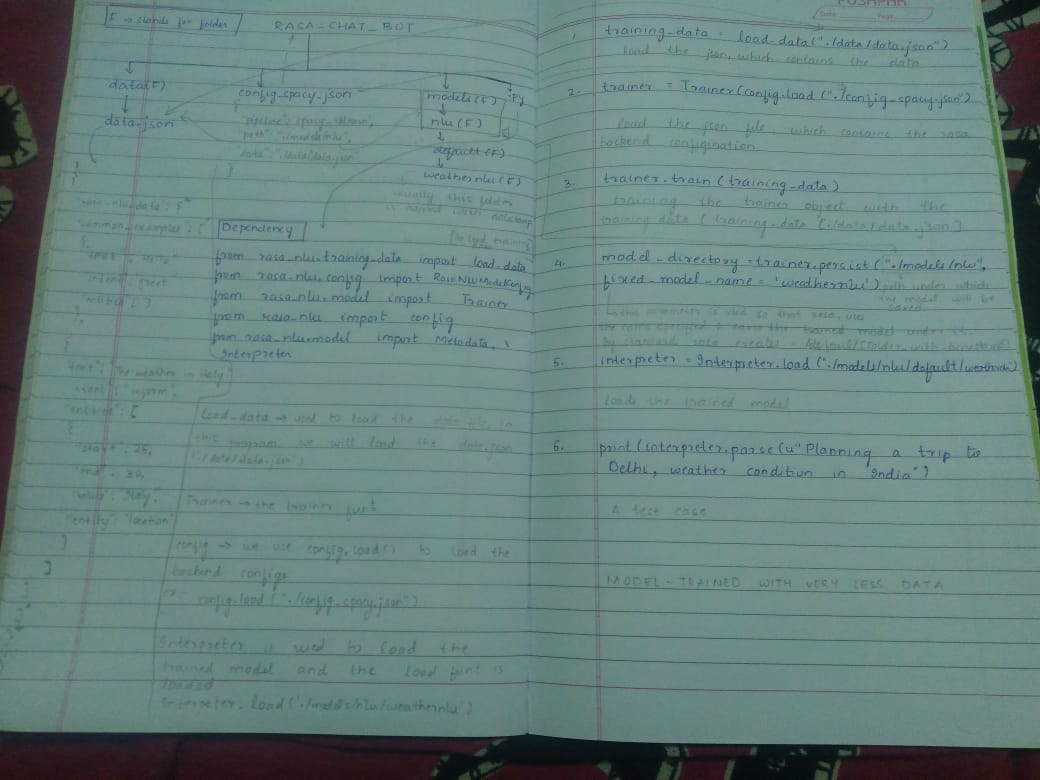 F → stands for folder
RASA_CHAT_BOT
data(F)
config_spacy.json
models(F)
.py
data.json
"pipeline": "spacy_sklearn",
"path": "./models/nlu",
"data": "./data/data.json"
}
nlu(F)
default(F)
weathernlu(F)
usually this folder
is named with
{
"rasa_nlu_data": {
"common_examples": [
{
"text":
"intent": "greet"
"entities": [ ]
},
{
"text": "The weather in italy"
"intent": "inform",
"entities": [
{
"start":
"end":
"value": "Italy",
"entity": "location"
}
]
Dependency
from rasa_nlu.training_data import load_data
from rasa_nlu.config import RasaNLUModelConfig
from rasa_nlu.model import Trainer
from rasa_nlu import config
from rasa_nlu.model import Metadata,
Interpreter
load_data → used to load the data file, in
this program we will load the data.json
("./data/data.json")
Trainer → the trainer funt
config → we use config.load() to load the
backend configs
config.load("./config_spacy.json")
Interpreter is used to load the
trained model and the load funt is
loaded
Interpeter.load('./models/nlu/weathernlu')
1. training_data = load_data("./data/data.json")
load the json, which contains the data
2. trainer = Trainer(config.load("./config_spacy.json")
load the json file, which contains the rasa
backend configination
3. trainer.train(training_data)
training the trainer object with the
training data [training_data ("./data/data.json]
4. model_directory = trainer.persist("./models/nlu",
fixed_model_name = 'weathernlu')
path under which
the model will be
saved
this parameter is used so that rasa, uses
the name specified & saves the trained model under it.
By standard rasa creates
5. interpreter = Interpreter.load("./models/nlu/default/weathernlu")
loads the trained model
6. print(interpreter.parse(u"Planning a trip to
Delhi, weather condition in India")
A test case
MODEL - TRAINED WITH VERY LESS DATA